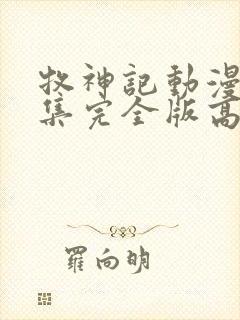 牧神記動漫
集完全版高
羅向明